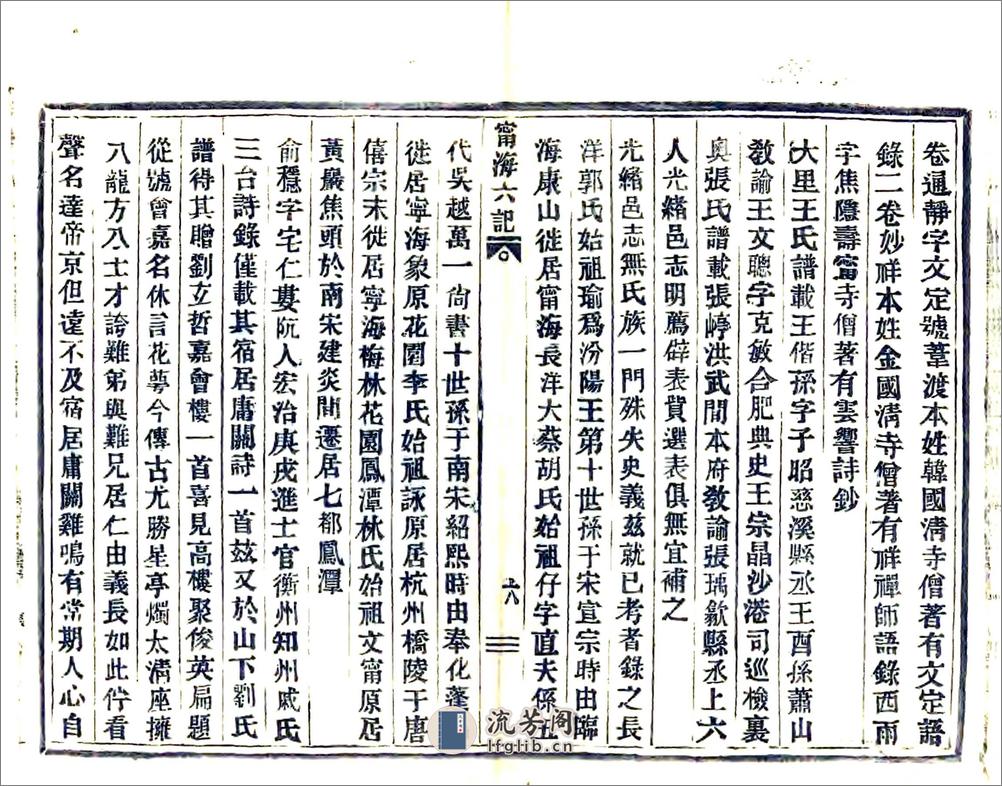 卷通靜字文定號葦渡本姓韓國淸寺僧著有文定語
錄二卷妙祥本姓金國淸寺僧著有祥禪師語錄西雨
字焦隱壽甯寺僧著有雲響詩鈔
大里王氏譜載王偕孫字子昭慈溪縣丞王酉孫蕭山
敎諭王文聰字克敏合肥典史王宗晶沙港司巡檢裏
奧張氏譜載張崞洪武間本府敎諭張瑀歙縣丞上六
人光緖邑志明薦辟表貲選表俱無宜補之
光緖邑志無氏族一門殊失史義茲就已考者錄之長
洋郭氏始祖瑜爲汾陽王第十世孫于宋宣宗時由臨
海康山徙居甯海長洋大蔡胡氏始祖仔字直夫係五
甯海六記
十八
代吳越萬一尙書十世孫于南宋紹熙時由奉化蓬
徙居寧海象原花園李氏始祖詠原居杭州橋陵于唐
僖宗末徙居寧海梅林花園鳳潭林氏始祖文甯原居
黃巖焦頭於南宋建炎間遷居七都鳳潭
俞穩字宅仁婁阮人宏治庚戌進士官衡州知州戚氏
三台詩錄僅載其宿居庸關詩一首茲又於山下劉氏
譜得其贈劉立哲嘉會樓一首喜見高樓聚俊英扁題
從號會嘉名休言花萼今傳古尤勝星亭燭太淸座擁
八龍方八士才誇難弟與難兄居仁由義長如此佇看
聲名達帝京但遠不及宿居庸關雞鳴有常期人心自
流芳阁
lfglib.cn